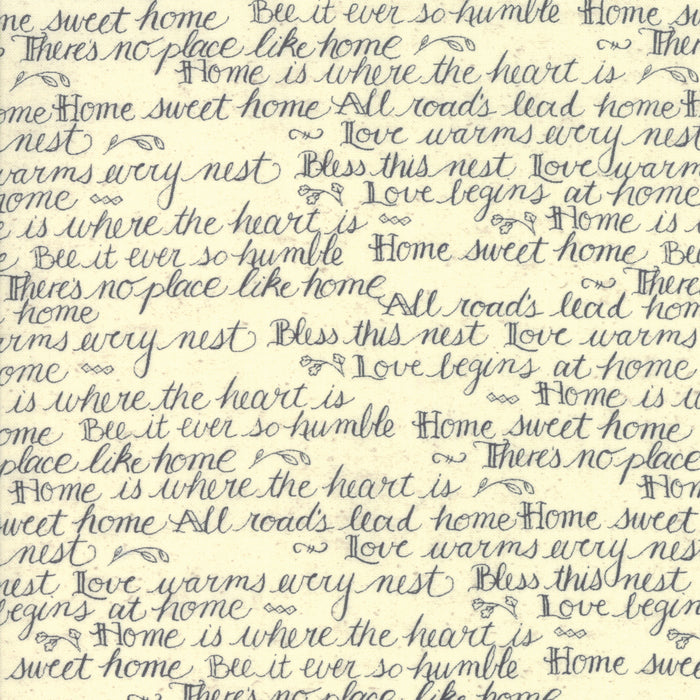 me sweet home Bee it ever so humble Home s
There's no place like home Ther
Home is where the heart is
ome Home sweet home All road's lead home H
nest Love warms every nest
warms every nest Bless this nest Love warm
home Love begins at home
e is where the heart is Home is
e Bee it ever so humble Home sweet home Bee
There's no place like home There
home All road's lead hom
rms every nest Bless this nest Love warms
ome Love begins at home
is where the heart is Home is w
ome Bee it ever so humble Home sweet home
place like home There's no place
Home is where the heart is Hom
weet home All road's lead home Home sweet
nest Love warms every nes
nest Love warms every nest Bless this nest
begins at home Love begin
Home is where the heart is
sweet home Bee it ever so humble Home swee
There's no place like home